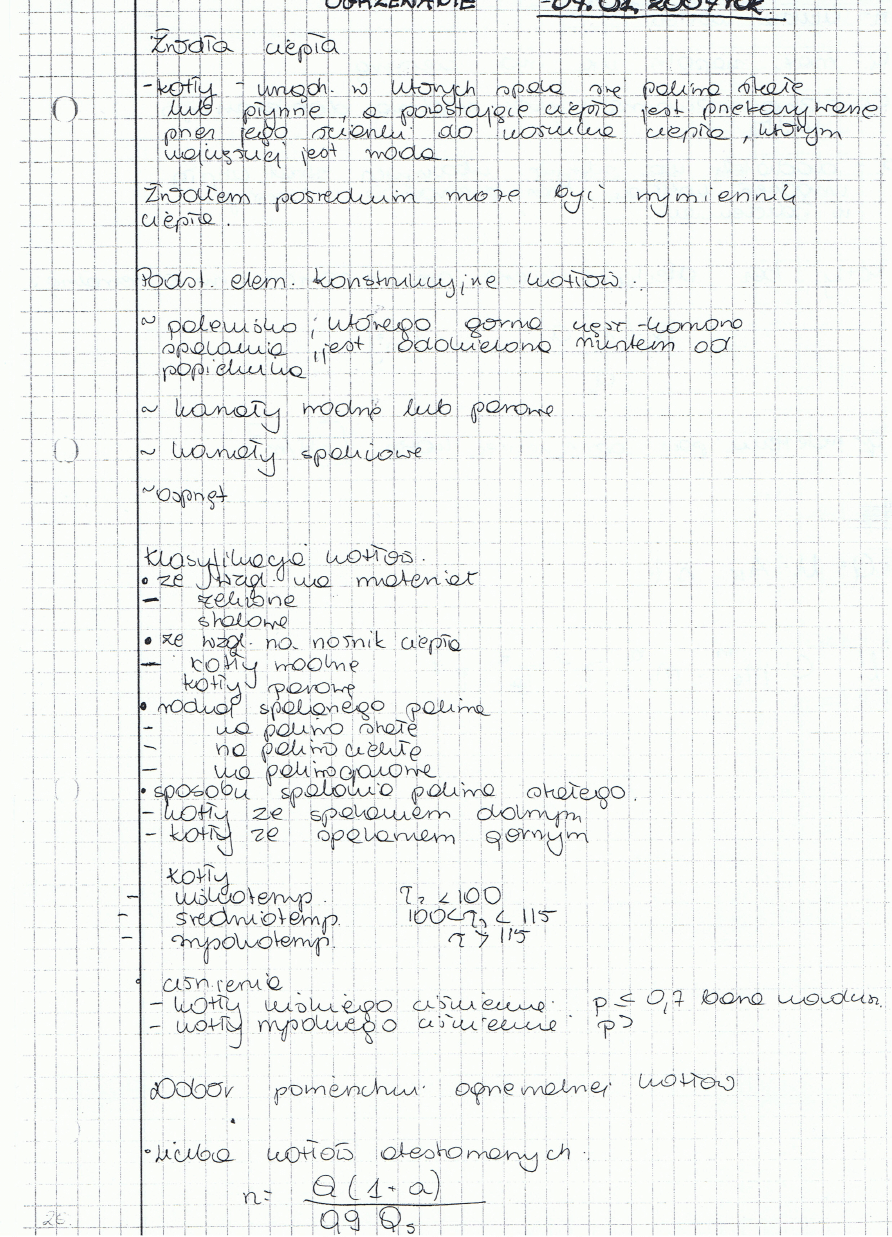 OGRZEWANIE - 04.01.2004 rok
Źródła ciepła
- kotły - urządz. w których spala się paliwo stałe
lub płynne, a powstające ciepło jest przekazywane
przez jego ścianki do nośnika ciepła, którym
najczęściej jest woda.
Źródłem pośrednim może być wymiennik
ciepła.
Podst. elem. konstrukcyjne kotłów.
~ palenisko, którego górna część - komora
spalania, jest oddzielona rusztem od
popielnika
~ kanały wodne lub parowe
~ kanały spalinowe
~ osprzęt
Klasyfikacja kotłów.
• ze wzgl. na materiał
- żeliwne
stalowe
• ze wzgl. na nośnik ciepła
- kotły wodne
kotły parowe
• rodzaj spalanego paliwa
- na paliwo stałe
- na paliwo ciekłe
- na paliwo gazowe
• sposobu spalania paliwa stałego.
- kotły ze spalaniem dolnym
- kotły ze spalaniem górnym
kotły
- niskotemp. τz < 100
- średniotemp. 100 < τz < 115
- wysokotemp. τ > 115
• ciśnienia
- kotły niskiego ciśnienia p ≤ 0,7 bara
- kotły wysokiego ciśnienia p >
Dobór powierzchni ogrzewalnej kotłów
• Liczba kotłów
n = Q (1 + a)
0,9 Qs
26.